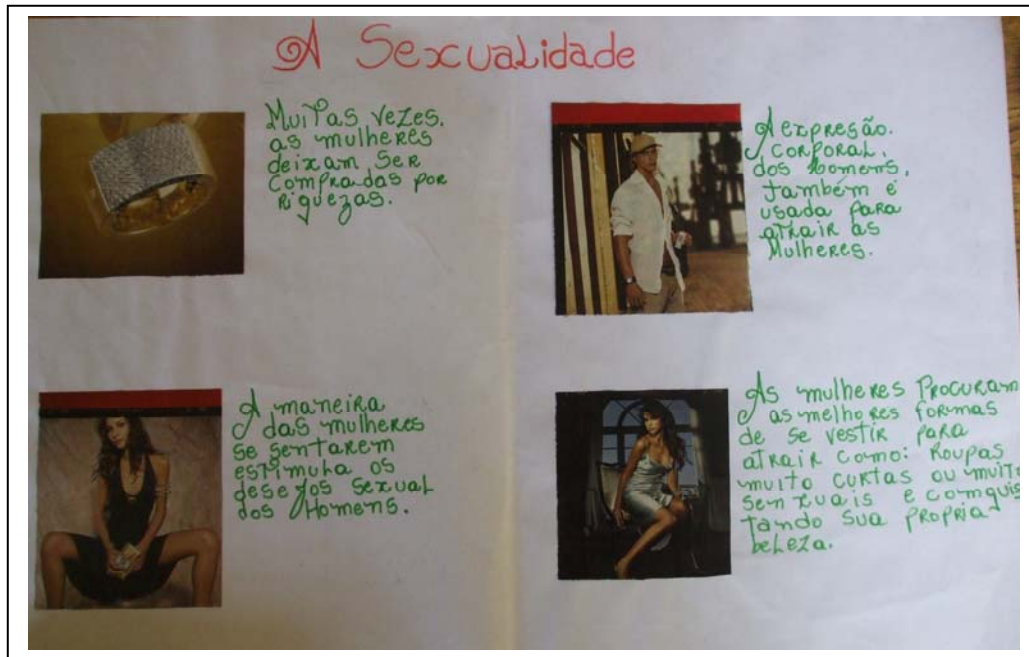 A Sexualidade
Muitas vezes.
as mulheres
deixam ser
compradas por
riquezas.
A expresão.
corporal.
dos homens,
também é
usada para
atrair as
Mulheres.
A maneira
das mulheres
se sentarem
estimula os
desejos sexual
dos Homens.
As mulheres procuram
as melhores formas
de se vestir para
atrair como: Roupas
muito curtas ou muito
senxuais e comquis
tando sua propria
beleza.